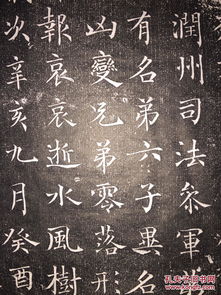 潤州司法叅軍
有名弟六子異名
凶變兄弟零落形
報哀哀逝水風樹
次辛亥九月癸酉
孔夫子旧书网